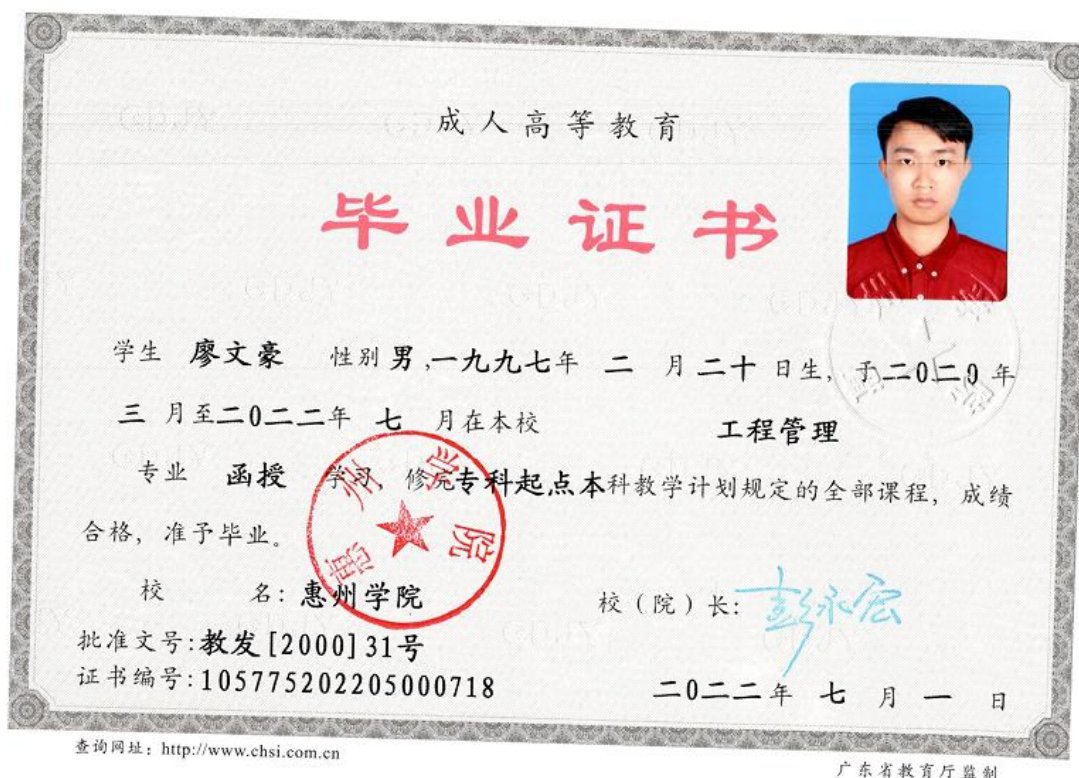 成人高等教育
毕业证书
学生 廖文豪 性别 男,一九九七年 二 月 二十 日生, 于二0二0年
三 月至二0二二年 七 月在本校 工程管理
专业 函授 学习, 修完专科起点本科教学计划规定的全部课程, 成绩
合格, 准予毕业。
惠州学院
校 名: 惠州学院 校(院)长: 彭永宏
批准文号:教发[2000]31号
证书编号:105775202205000718 二0二二年 七 月 一 日
查询网址: http://www.chsi.com.cn
广东省教育厅监制